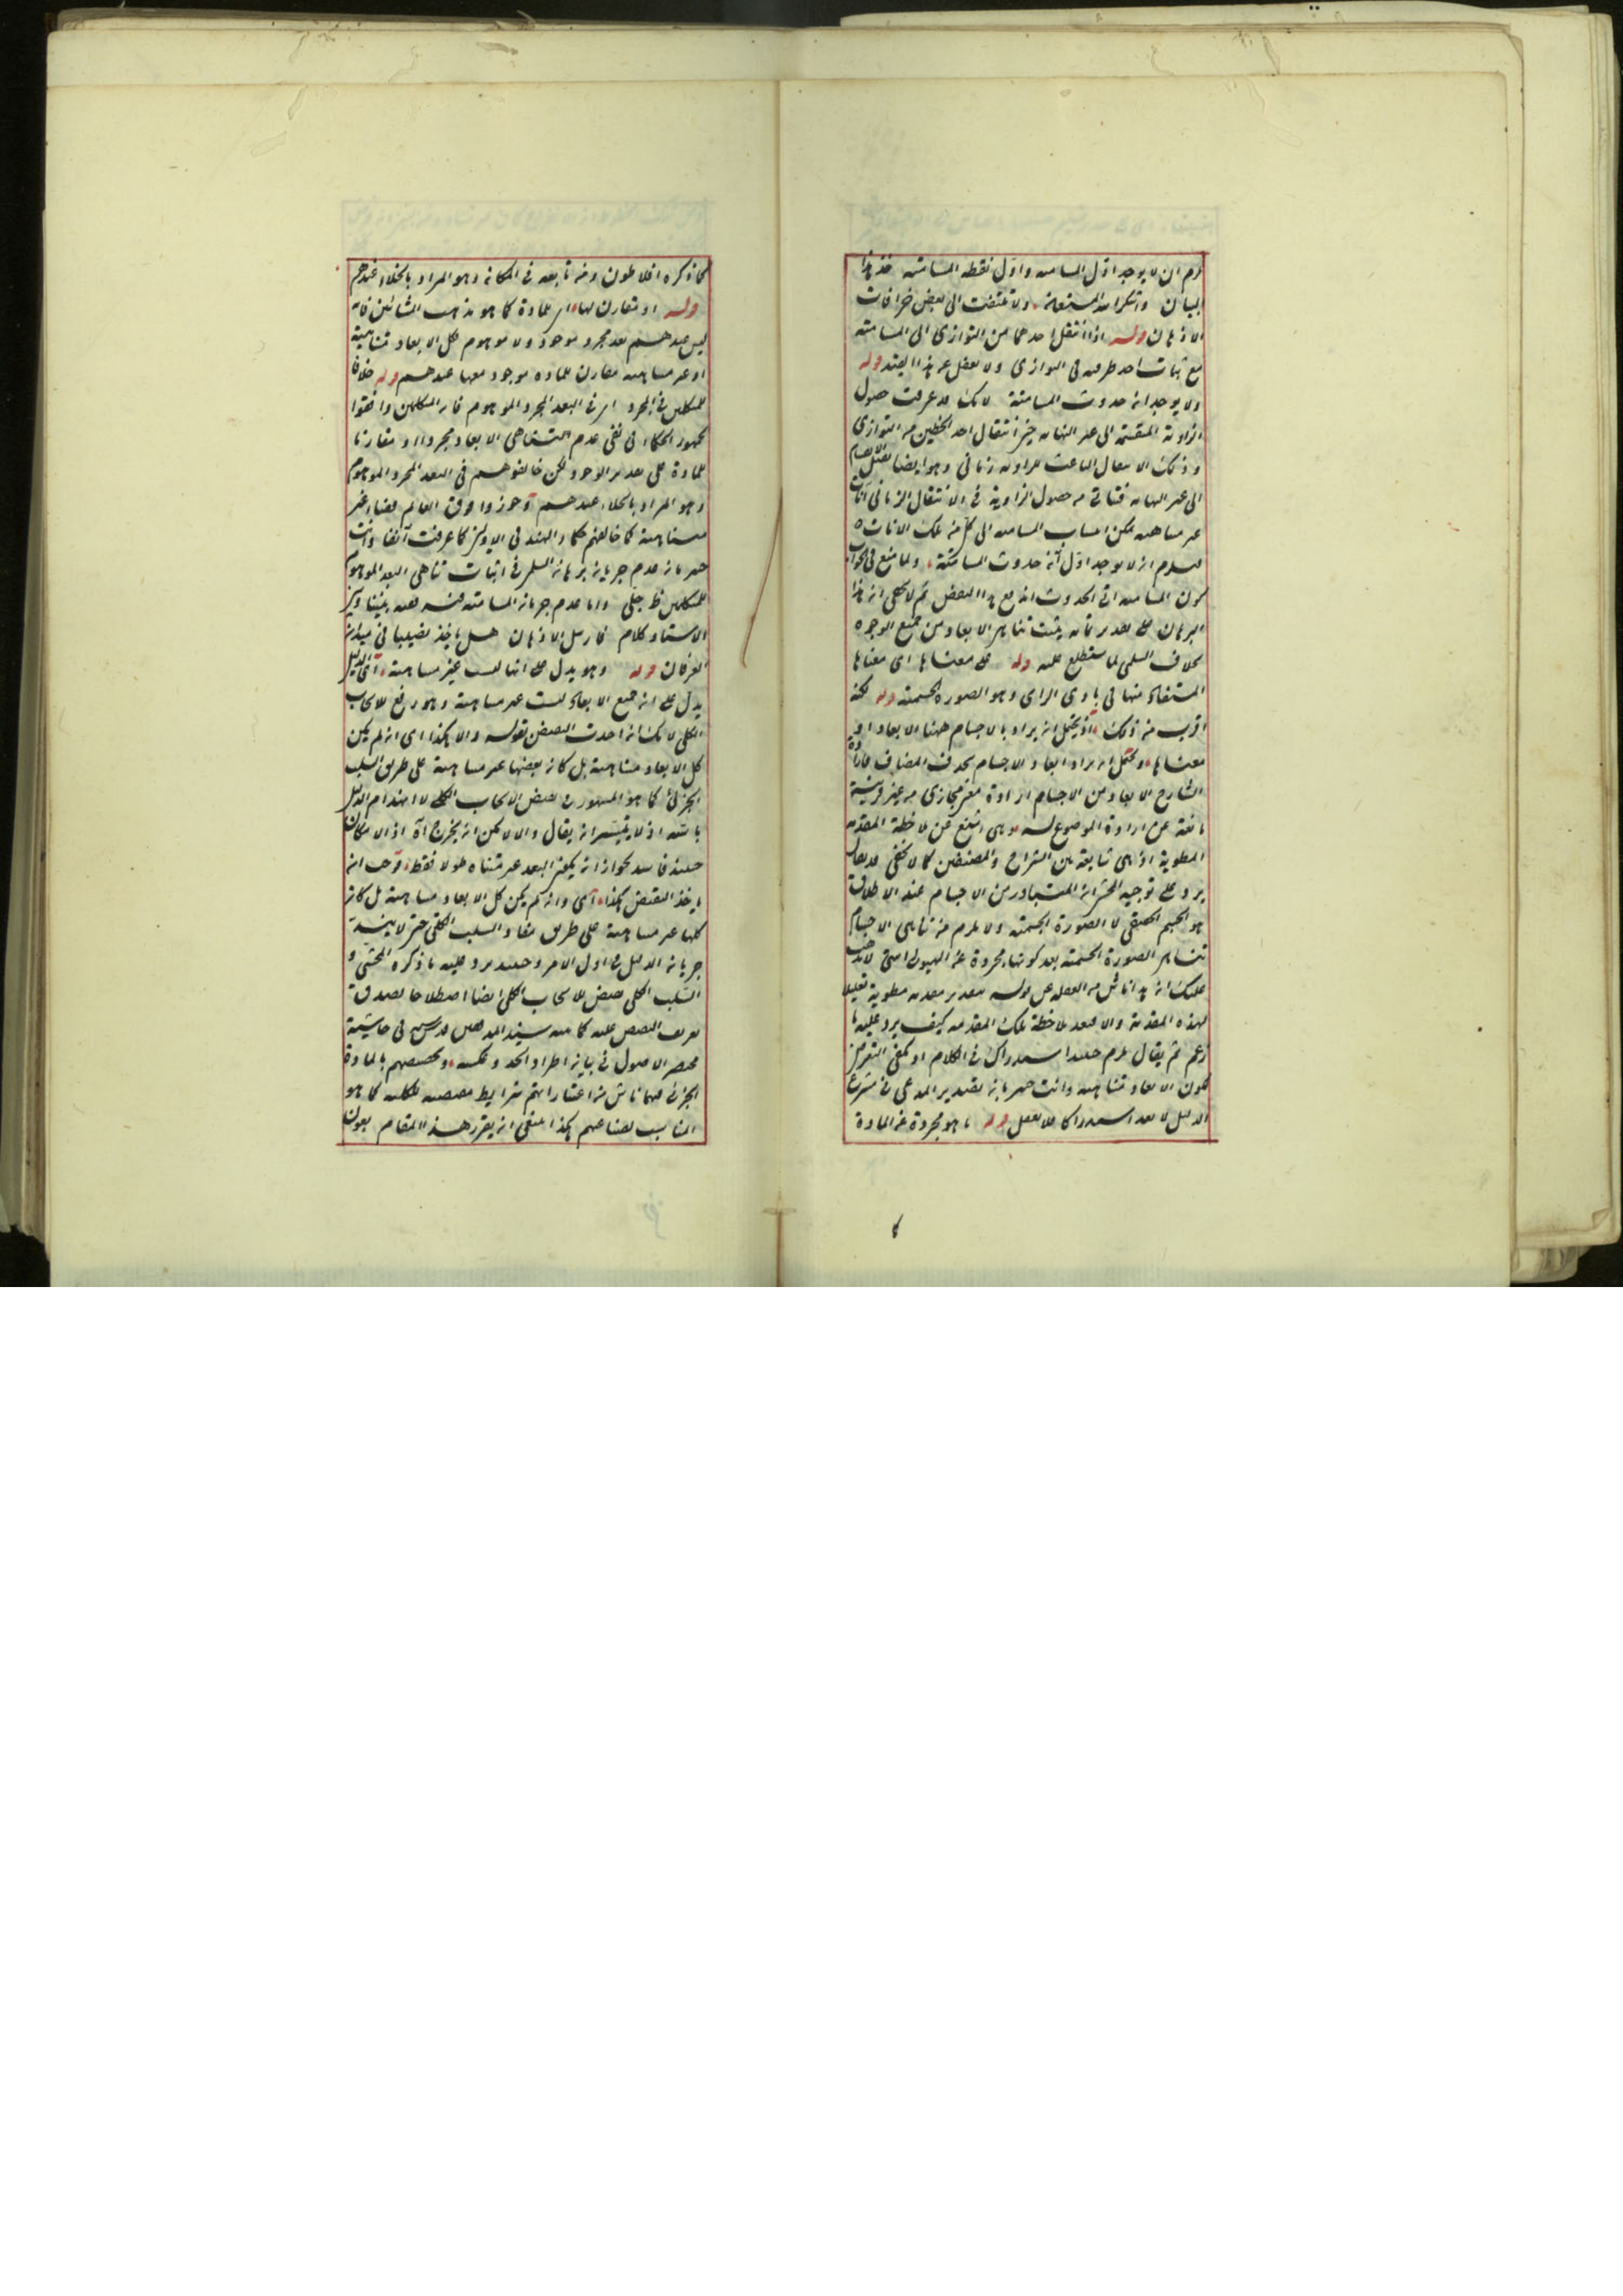 لزم ان لا يوجد اول المسامتة واول نقطة المسامتة خذ هذا
البيان واشكر الله المستعان ولا تلتفت الى بعض خرافات
الاذهان قوله اذا انتقل احدهما من التوازي الى المسامتة
مع ثبات احد طرفيه في التوازي ولا تغفل عن هذا القيد قوله
ولا يوجد انه حدوث المسامتة لانك قد عرفت حصول
الزاوية المنقسمة الى غير النهاية حين انتقال احد الخطين من التوازي
وذلك الانتقال الباعث للزاوية زماني وهو ايضا يقبل الانقسام
الى غير النهاية حصول الزاوية في الانتقال الزماني آنات
غير متناهية يمكن انتساب المسامتة الى كل من تلك الآنات
فيلزم ان لا يوجد اول آن حدوث المسامتة
كون المسامتة آني الحدوث مع هذا البعض ثم لا يخفى ان هذا
البرهان على تقدير تمامه يثبت تناهي الابعاد من جميع الوجوه
بخلاف السلمي لما ستطلع عليه قوله على معناها اي معناها
المستفاد منها في بادي الراي وهو الصورة الجسمية قوله لكنه
اقرب من ذلك اذ يحتمل ان يراد بالاجسام ههنا الابعاد
معناها ويحتمل ان يراد ابعاد الاجسام بحذف المضاف فاراد
الشارح الابعاد من الاجسام ارادة معنى مجازي من غير قرينة
مانعة عن ارادة الموضوع له وهي اشنع عن ملاحظة المقدمة
المطوية اذ هي شايعة بين الشراح والمصنفين كما لا يخفى
يرد على توجيه المحشي ان المتبادر من الاجسام عند الاطلاق
هو الجسم الحقيقي لا الصورة الجسمية ولا يلزم من تناهي الاجسام
تناهي الصورة الجسمية بعد كونها مجردة عن الهيولى
عليك ان هذا ناش من الغفلة عن قوله بتقدير مقدمة مطوية
لهذه المقدمة والا فبعد ملاحظة تلك المقدمة كيف يرد عليه ما
زعم ثم يقال يلزم حينئذ استدراك في الكلام اذ يكفي التعرض
لكون الابعاد متناهية وانت خبير بان تقدير المدعى في شروع
الدليل لا يعد استدراكا فلا تغفل قوله ما هو مجردة عن المادة
كما ذكره افلاطون ومن تابعه في المكان وهو المراد بالخلاء عندهم
قوله او تقارن لها اي للمادة كما هو مذهب المشائين فانه
ليس عندهم بعد مجرد موجود ولا موهوم فكل الابعاد متناهية
او غير متناهية مقارن للمادة موجود معها عندهم قوله خلافا
للمتكلمين في المجرد اي في البعد المجرد الموهوم فان المتكلمين وافقوا
جمهور الحكماء في نفي عدم التناهي الابعاد مجردا او مقارنا
للمادة على تقدير الوجود لكن خالفوهم في البعد المجرد الموهوم
وهو المراد بالخلاء عندهم وجوزوا فوق العالم فضاء غير
متناهية كما خالفهم حكماء الهند في الاولين كما عرفت آنفا وانت
خبير بان عدم جريان برهان السلم في اثبات تناهي البعد الموهوم
للمتكلمين ظ جلي واما عدم جريان المسامتة فيه ففيه بيننا وبين
الاستاد كلام فارسل الاذهان هل ياخذ نصيبا في ميدان
العرفان قوله وهو يدل على انها ليست غير متناهية اي الدليل
يدل على ان جميع الابعاد ليست غير متناهية وهو رفع للايجاب
الكلي لانك اذا اخذت النقيض بقوله والا هكذا اي ان لم يكن
كل الابعاد متناهية بل كان بعضها غير متناهية على طريق السلب
الجزئي كما هو المشهور في نقيض الايجاب الكلي لا انهدام الدليل
بالله اذ لا يتيسر ان يقال والا لامكن ان يخرج آه اذ الامكان
حينئذ فاسد لجواز ان يكون البعد غير متناه طولا فقط وجب ان
ياخذ النقيض هكذا اي وان لم يكن كل الابعاد متناهية بل كان
كلها غير متناهية على طريق مفاد السلب الكلي حتى لا ينسد
جريان الدليل في اول الامر وحينئذ يرد عليه ما ذكره المحشي و
السلب الكلي نقيض للايجاب الكلي ايضا اصطلاحا لصدق
تعريف النقيض عليه كما بينه سيد المدققين قدس سره في حاشية
مختصر الاصول في بيان اطراد الحد وعكسه وتخصيصهم بالمادة
الجزئي فهما ناش من اعتبارهم شرايط مخصصة للكلية كما هو
المناسب لصناعتهم هكذا ينبغي ان يقرر هذا المقام بعون